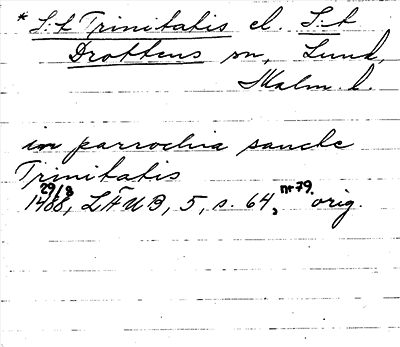 * S:t Trinitatis el. S:t
Drottens sn, Lund,
Malm. l.
in parrochia sancte
Trinitatis
29/8 nr 79.
1488, LÄUB, 5, s. 64, orig.